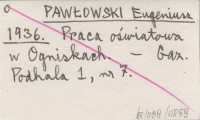 PAWŁOWSKI Eugeniusz
1936. Praca oświatowa
w Ogniskach. — Gaz.
Podhala 1, nr 7.